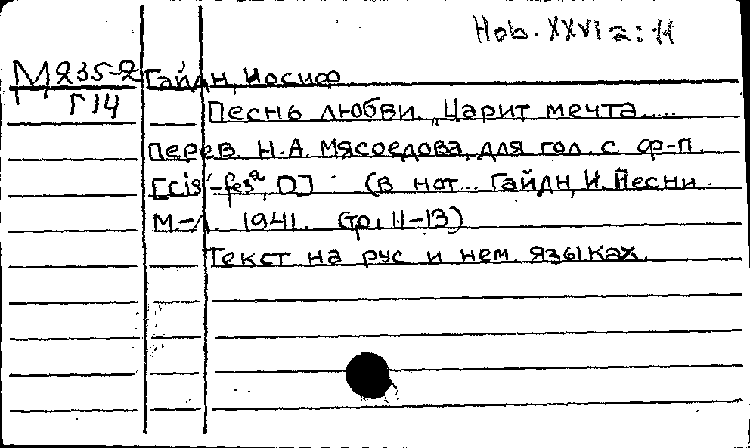 Нов. XXVI а: 11
М 235-2 Гайдн, Иосиф
Г 14 Песнь любви. „Царит мечта....
перев. Н.А. Мясоедова, для гол. с ф-п.
D] (в нот... Гайдн, И. Песни
М-Л. 1941. стр. 11-13)
Текст на рус и нем языках.